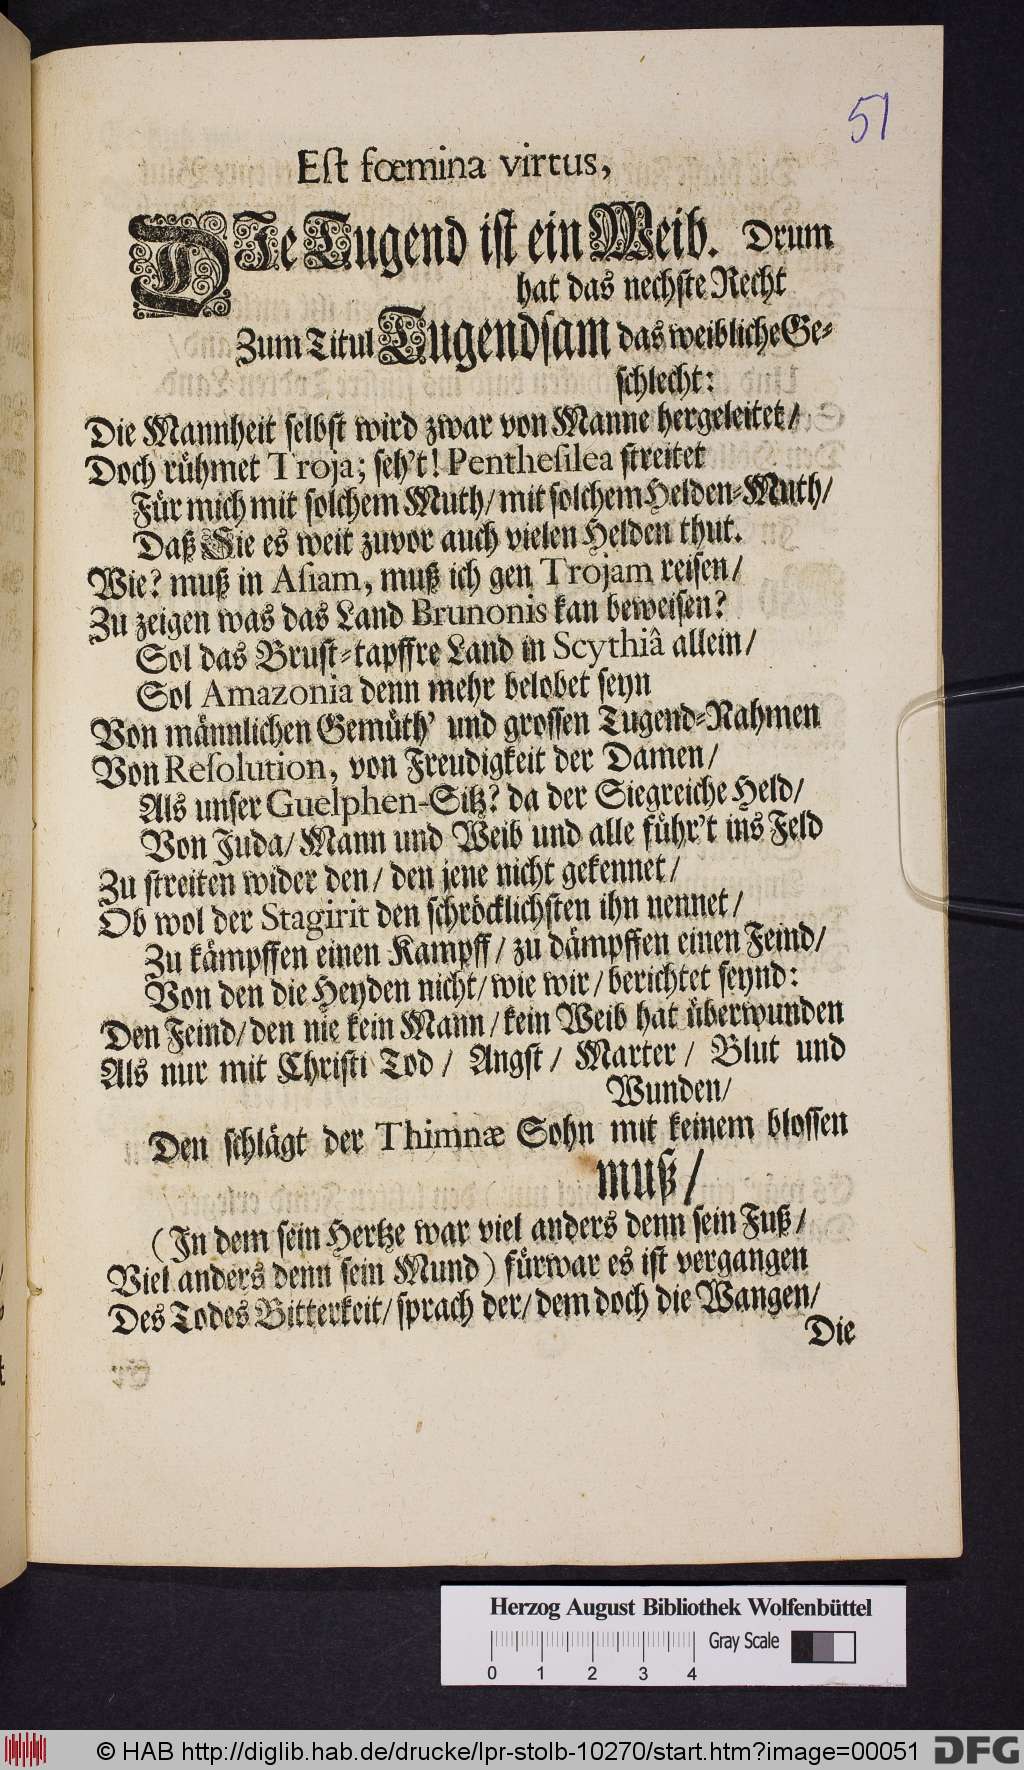 51
Eſt fœmina virtus,
DIe Tugend iſt ein Weib. Drum
hat das nechſte Recht
Zum Titul Tugendſam das weibliche Ge-
ſchlecht:
Die Mannheit ſelbſt wird zwar von Manne hergeleitet/
Doch rühmet Troja; ſeh't! Pentheſilea ſtreitet
Für mich mit ſolchem Muth/ mit ſolchem Helden-Muth/
Daß Sie es weit zuvor auch vielen Helden thut.
Wie? muß in Aſiam, muß ich gen Trojam reiſen/
Zu zeigen was das Land Brunonis kan beweiſen?
Sol das Bruſt-tapffre Land in Scythiâ allein/
Sol Amazonia denn mehr belobet ſeyn
Von männlichen Gemüth' und groſſen Tugend-Nahmen
Von Reſolution, von Freudigkeit der Damen/
Als unſer Guelphen-Sitz? da der Siegreiche Held/
Von Juda/ Mann und Weib und alle führ't ins Feld
Zu ſtreiten wider den/ den jene nicht gekennet/
Ob wol der Stagirit den ſchröcklichſten ihn nennet/
Zu kämpffen einen Kampff/ zu dämpffen einen Feind/
Von den die Heyden nicht/ wie wir/ berichtet ſeynd:
Den Feind/ den nie kein Mann/ kein Weib hat überwunden
Als nur mit Chriſti Tod/ Angſt/ Marter/ Blut und
Wunden/
Den ſchlägt der Thimnæ Sohn mit keinem bloſſen
muß/
(In dem ſein Hertze war viel anders denn ſein Fuß/
Viel anders denn ſein Mund) fürwar es iſt vergangen
Des Todes Bitterkeit/ ſprach der/ dem doch die Wangen/
Die
Herzog August Bibliothek Wolfenbüttel
Gray Scale
0 1 2 3 4
© HAB http://diglib.hab.de/drucke/lpr-stolb-10270/start.htm?image=00051
DFG